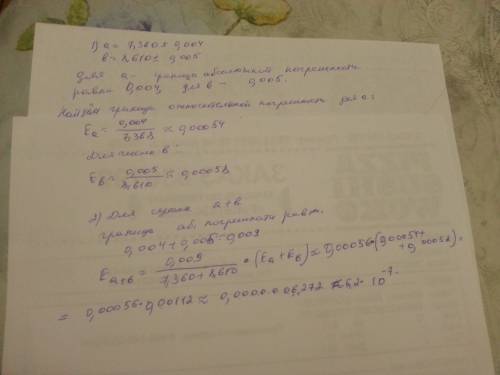 1) a = 7,360 ± 0,004
в = 8,610 ± 0,005
Для а - граница абсолютной погрешности
равна 0,004, для в - 0,005.
Найдём границы относительной погрешности для а:
Ea = 0,004 / 7,368 ≈ 0,00054
Для числа в:
Eв = 0,005 / 8,610 ≈ 0,00058
2) Для суммы а+в
граница абс. погрешности равна
0,004 + 0,005 = 0,009
Ea+в = 0,009 / 7,360 + 8,610 * (Ea + Eв) ≈ 0,00056 * (0,00054 +
+ 0,00058) =
= 0,00056 * 0,00112 ≈ 0,0000006272 ≈ 6,2 · 10⁻⁷
ЗАК